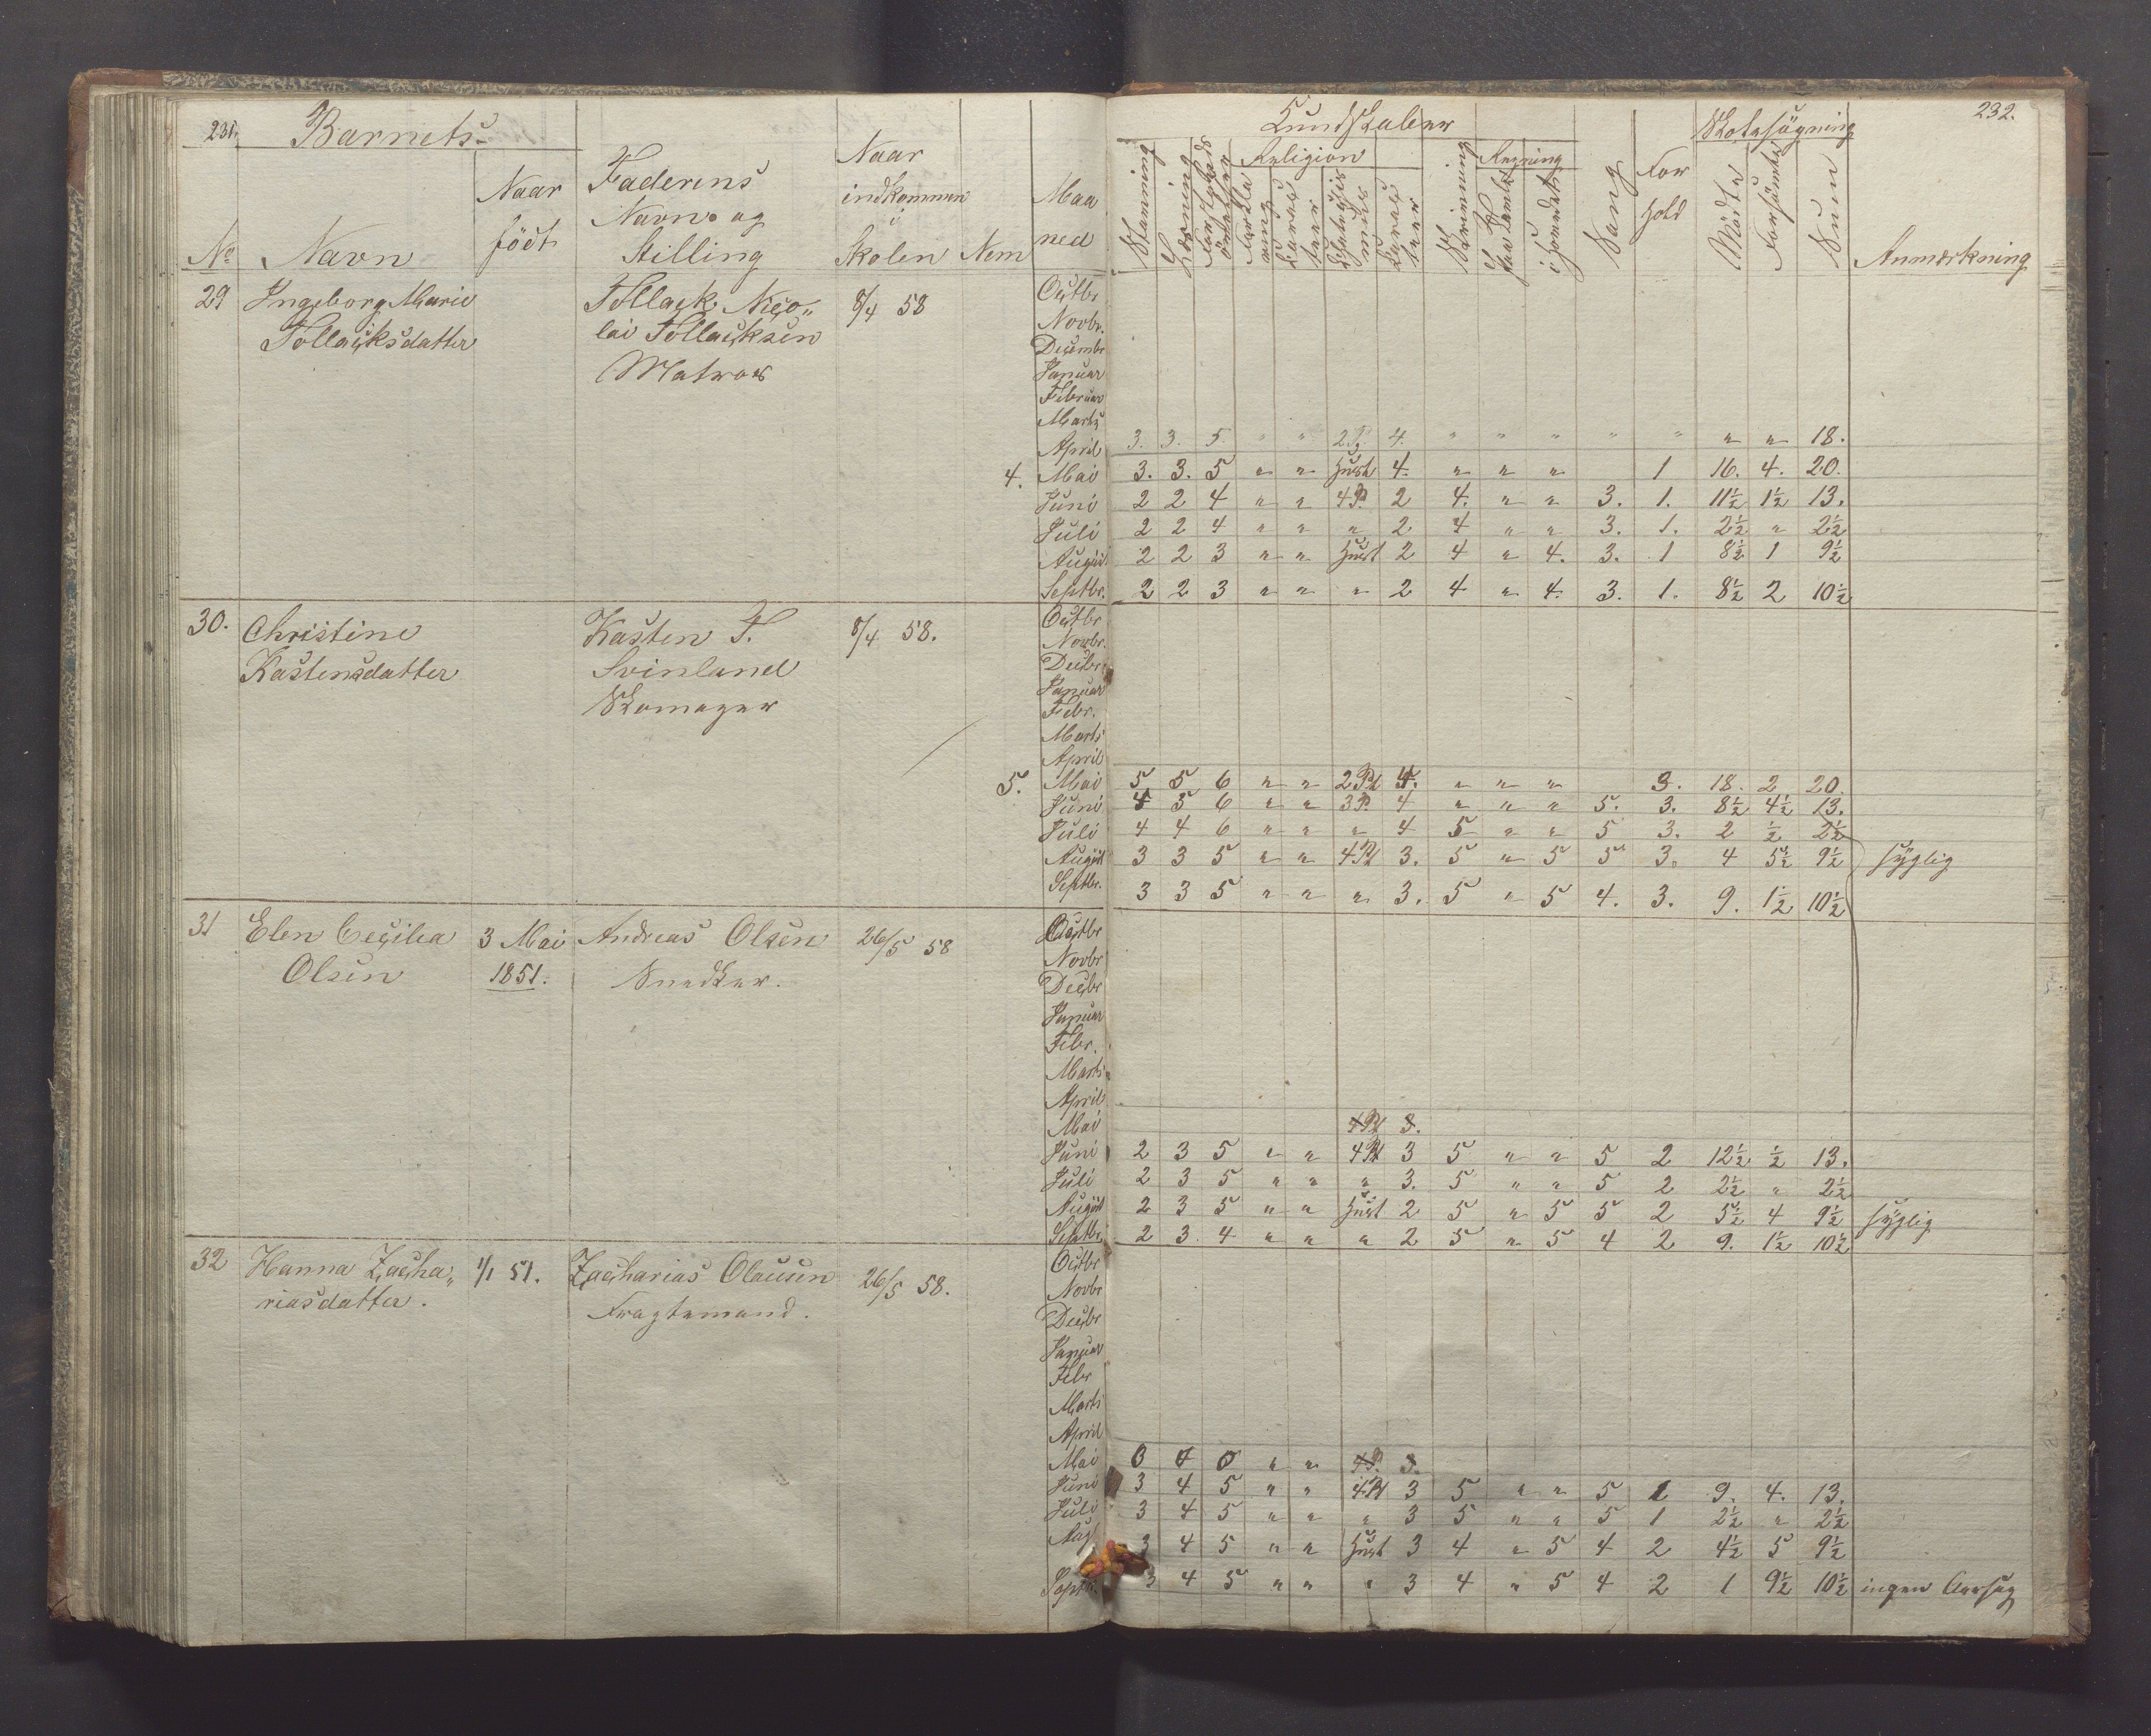 231.
Barnets
Nº
Navn
Naar
født
Faderens
Navn og
Stilling
Naar
indkommen
i
Skolen
Nem
Maa
ned
232.
Kundskaber
Stavning
Læsning
Religion
Skrivning
Regning
Sang
For
hold
Skolesøgning
Mødte
Forsømte
Sum
Anmærkning
29 Ingeborg Marie
Tollacksdatter
Tollack Nico„
lai Tollacksen
Matros
8/4 58
Octbr
Novbr.
Decembr
Januar
Februar
Marts
April 3. 3. 5. „ „ 2P. 4. „ „ „ „ „ „ „ 18.
4. Mai 3. 3. 5 „ „ 4. „ „ „ 1 16. 4. 20.
Juni 2 2 4 „ „ 4P. 2 4. „ „ 3. 1. 11½ 1½ 13.
Juli 2 2 4 „ „ „ 2 4 „ „ 3. 1. 2½ „ 2½
August 2 2 3 „ „ 2 4 „ 4. 3. 1 8½ 1 9½
Septbr. 2 2 3 „ „ „ 2 4 „ 4. 3. 1. 8½ 2 10½
30. Christine
Kastensdatter
Kasten T.
Svinland
Skomager
8/4 58.
Octbr
Novbr.
Decbr.
Januar
Febr.
Marts
April
5. Mai 5 5 6 „ „ 2Pl 4. „ „ „ 3. 18. 2 20.
Juni 4 5 6 „ „ 3P 4 „ „ „ 5. 3. 8½ 4½ 13.
Juli 4 4 6 „ „ „ 4 5 „ „ 5 3. 2 ½ 2½
August 3 3 5 „ „ 4Pl 3. 5 „ 5 5 3. 4 5½ 9½ sÿglig
Septbr. 3 3 5 „ „ „ 3. 5 „ 5 4. 3. 9. 1½ 10½
31 Elen Cecilia
Olsen
3 Mai
1851.
Andreas Olsen
Snedker.
26/5 58
Octbr
Novbr
Decbr
Januar
Febr.
Marts
April
Mai 4Pl 3.
Juni 2 3 5 „ „ 4Pl 3 5 „ „ 5 2 12½ ½ 13.
Juli 2 3 5 „ „ „ 3. 5 „ „ 5 2 2½ „ 2½
August 2 3 5 „ „ 2 5 „ 5 5 2 5½ 4 9½ sÿglig
Septbr. 2 3. 4 „ „ „ 2 5 „ 5 4 2 9. 1½ 10½
32 Hanna Zacha„
riasdatter.
1/1 51.
Zacharias Olausen
Fragtemand.
26/5 58.
Octbr
Novbr
Decbr
Januar
Febr
Marts
April
Mai
Juni 3 4 5 „ „ 4Pl 3 5 „ „ 5 1 9. 4. 13.
Juli 3 4 5 „ „ „ 3 5 „ „ 5 1 2½ „ 2½
Aug. 3 4 5 „ „ 3 4 „ 5 4 2 4½ 5 9½
Septbr. 3 4 5 „ „ „ 3 4 „ 5 4 2 1 9½ 10½ ingen Aarsag